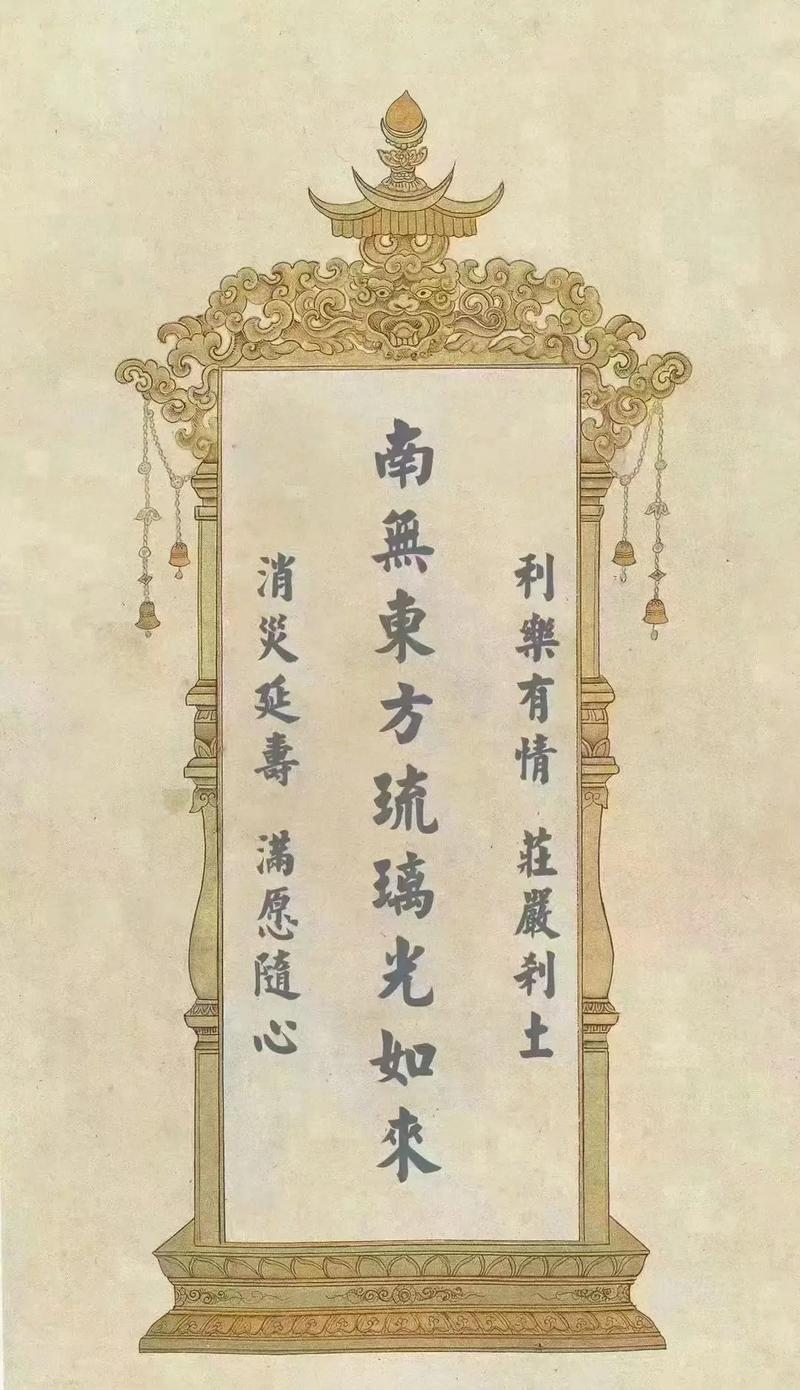 利樂有情 莊嚴刹土
南無東方琉璃光如來
消災延壽 滿愿隨心